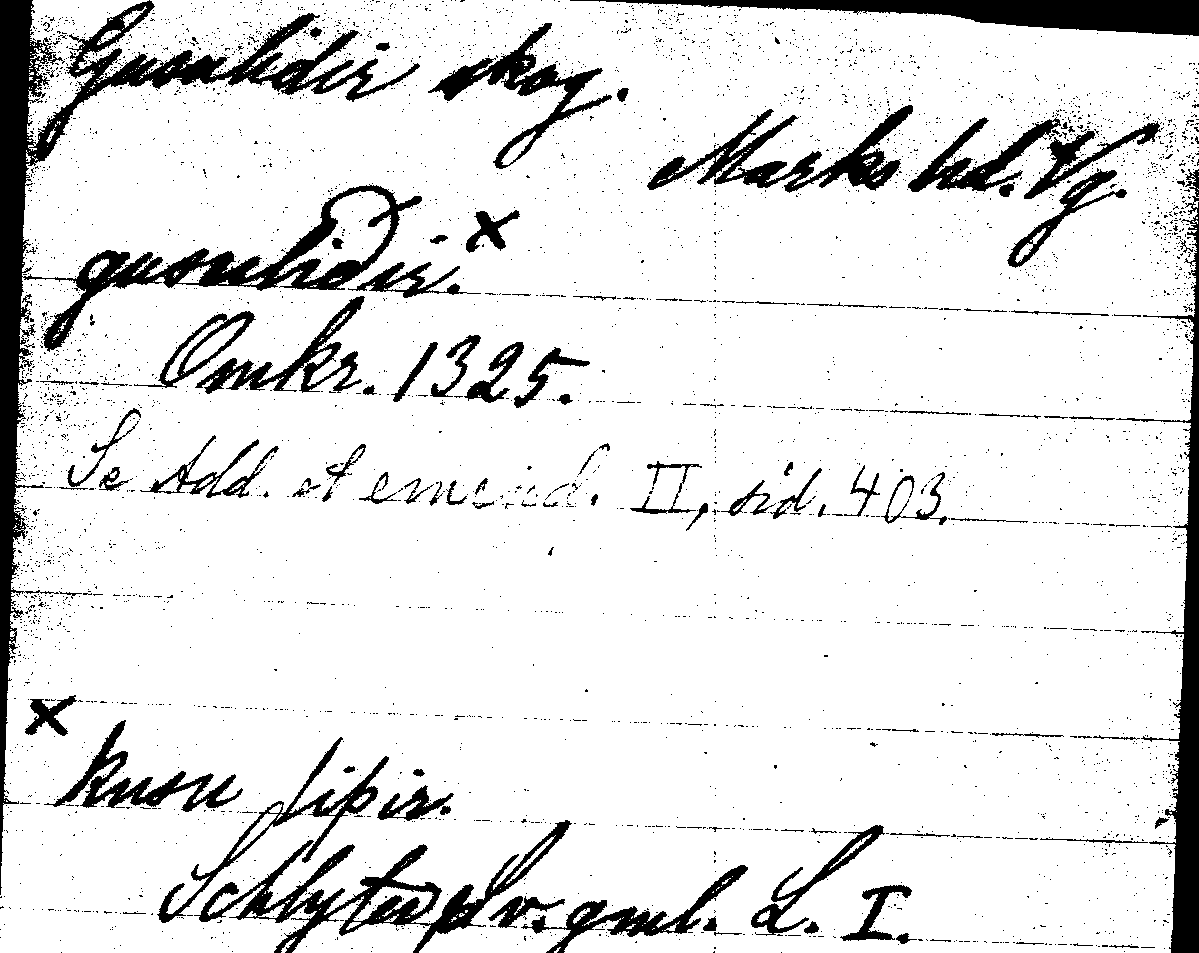 Gusulidir skog.
Marks hd. Vg.
gusulidir. ×
Omkr. 1325.
Se Add. et emend. II, sid. 403.
×
kusu liþir.
Schlyter, Sv. gml. L. I.